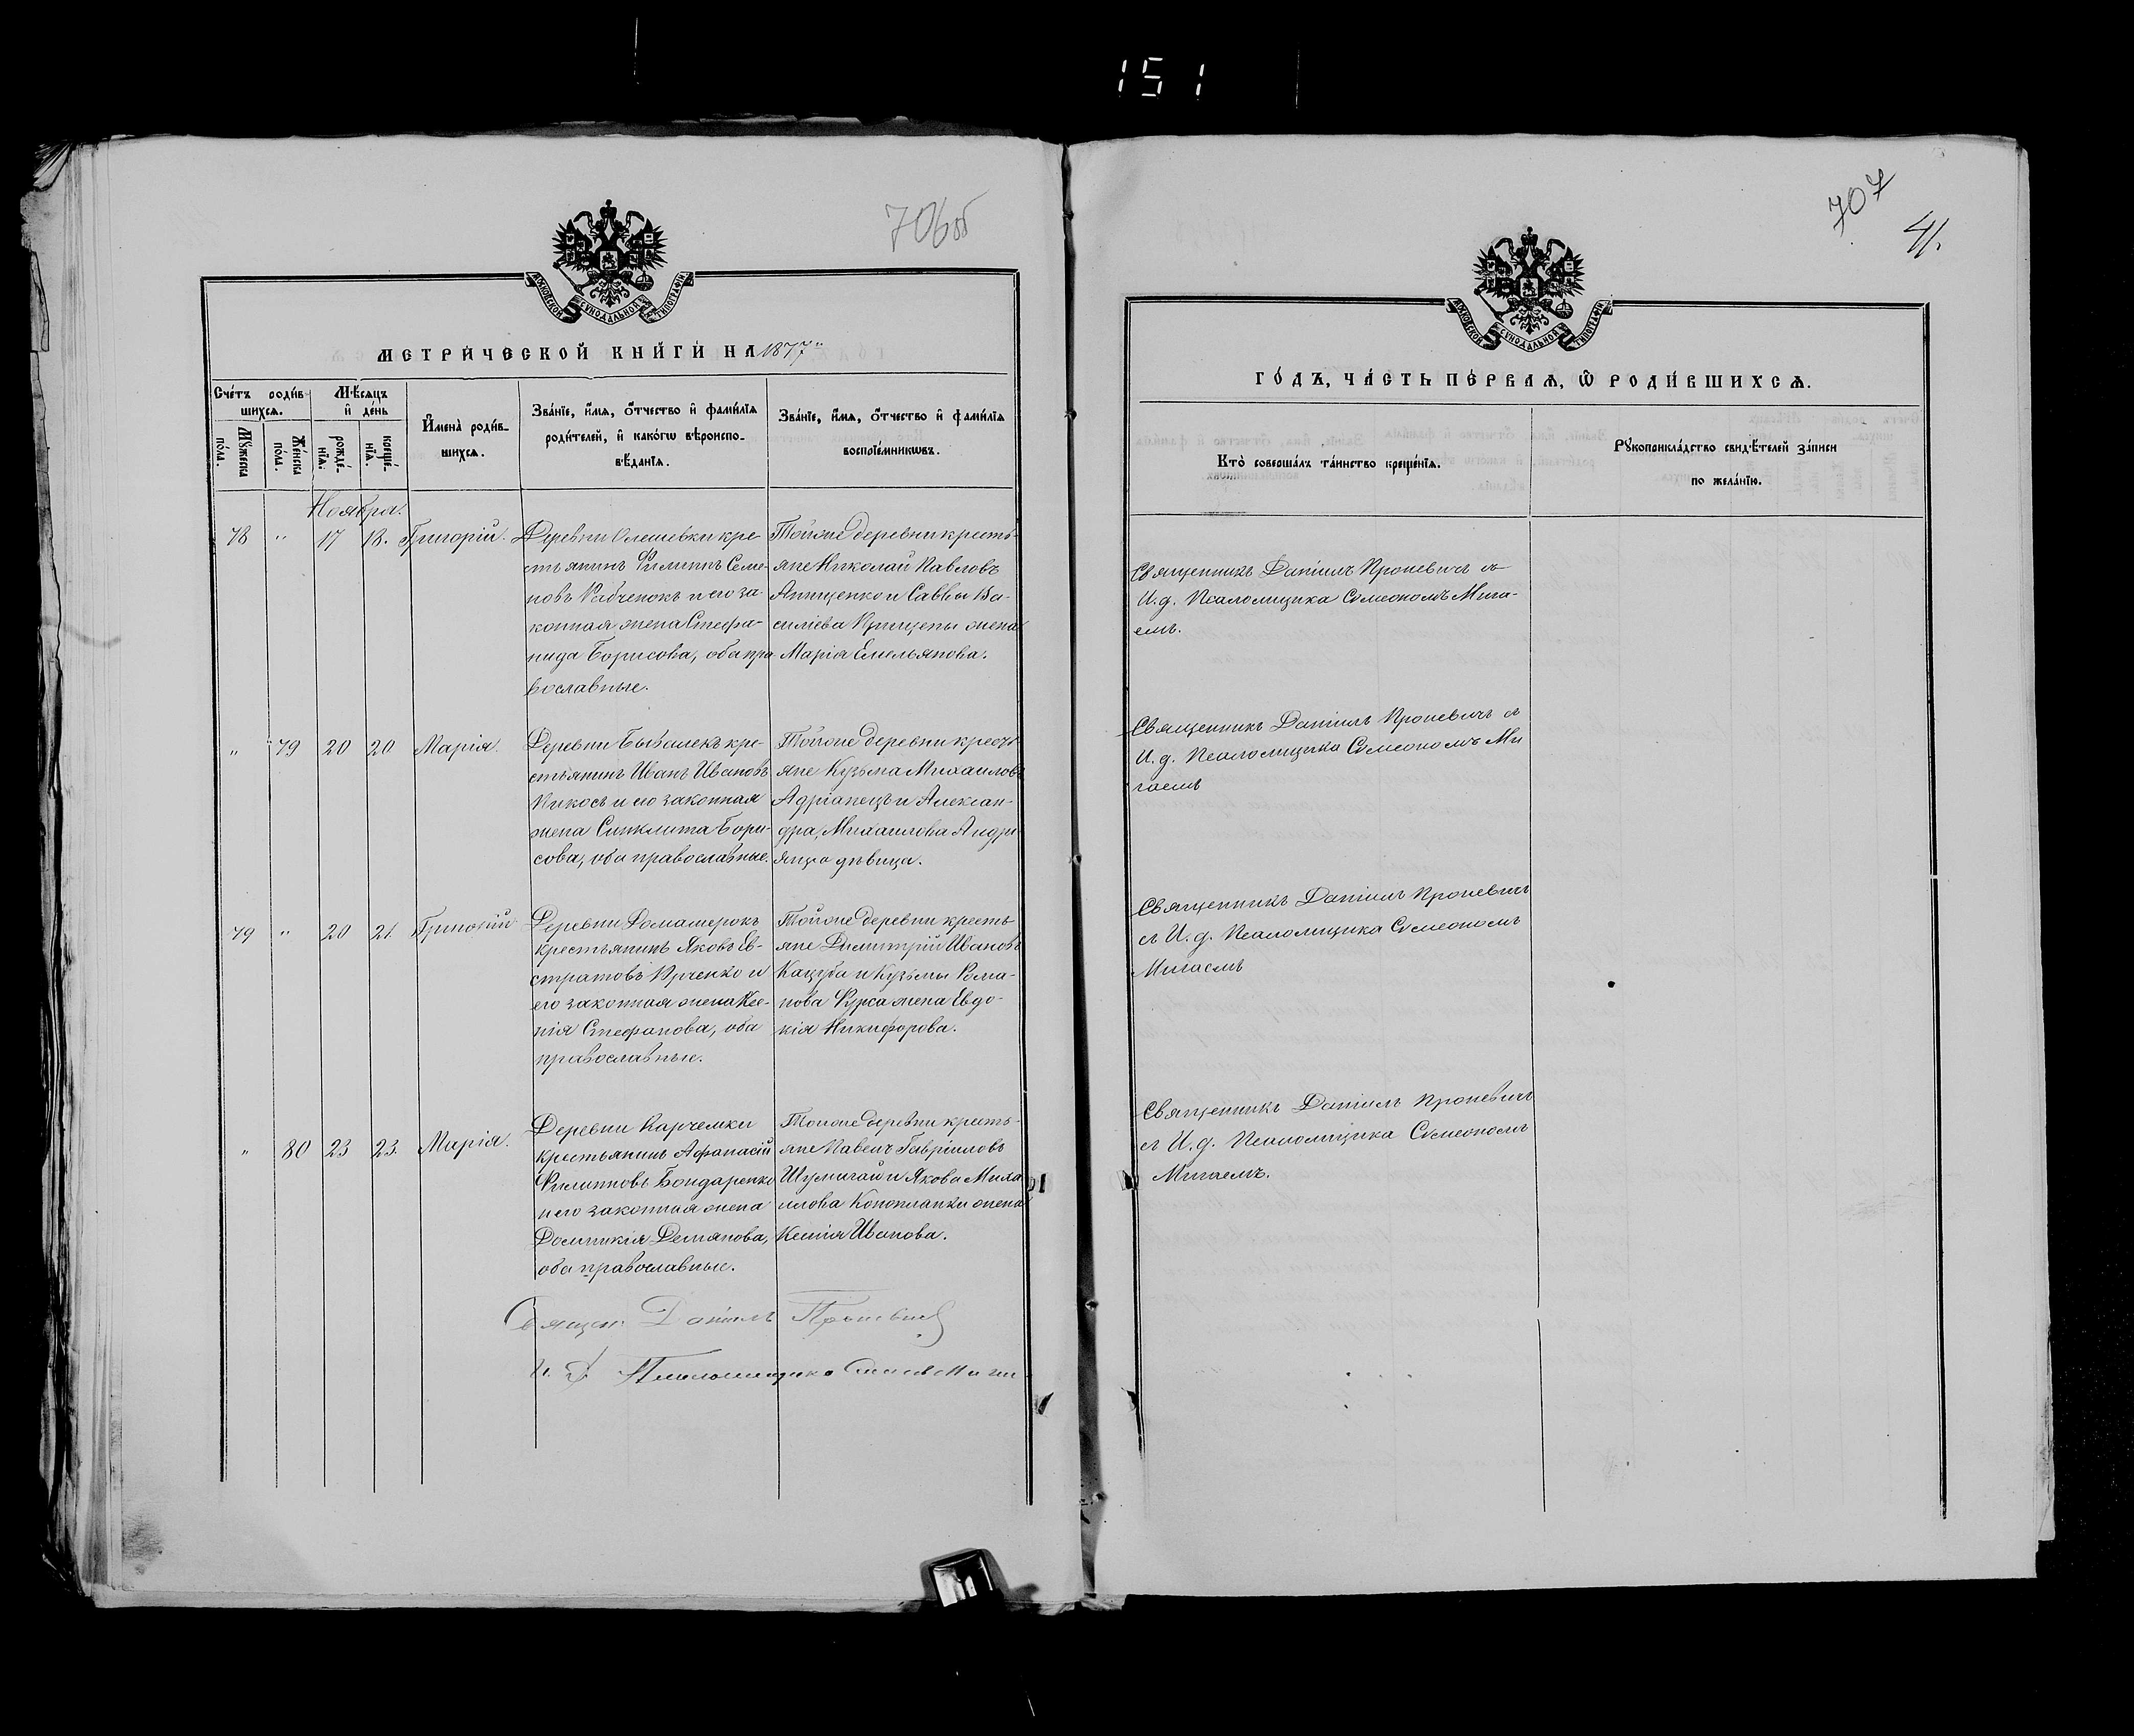 151
706об
МОСКОВСКОЙ СѴНОДАЛЬНОЙ ТИПОГРАФІИ
МЕТРИЧЕСКОЙ КНИГИ НА 1877
Счетъ родив
шихся.
Мѣсяцъ
и день
Мужеска
пола.
Женска
пола.
рожде-
нія.
креще-
нія.
Имена родив-
шихся.
Званіе, имя, отчество и фамилія
родителей, и какого вѣроиспо-
вѣданія.
Званіе, имя, отчество и фамилія
воспріемниковъ.
Ноября.
78 " 17 18. Григорій.
Деревни Олешевки кре-
стьянинъ Филиппъ Семе-
новъ Рабченокъ и его за-
конная жена Стефа-
нида Борисова, оба пра
вославные.
Тойже деревни кресть-
яне Николай Павловъ
Анищенко и Саввы Ва-
силіева Прищепы жена
Марія Емельянова.
" 79 20 20 Марія.
Деревни Бывалекъ кре-
стьянинъ Иванъ Ивановъ
Пикосъ и его законная
жена Синклита Бори-
сова, оба православные.
Тойже деревни кресть
яне Кузьма Михаиловъ
Адріанецъ и Алексан-
дра, Михаилова Андри
янца дѣвица.
79 " 20 21. Григорій
Деревни Домамерокъ
крестьянинъ Яковъ Ев-
стратовъ Юрченко и
его законная жена Ксе-
нія Стефанова, оба
православные.
Тойже деревни кресть
яне Димитрій Ивановъ
Кацуба и Кузьмы Рома-
нова Фурса жена Евдо-
кія Никифорова.
" 80 23 23. Марія.
Деревни Карчемки
крестьянинъ Афанасій
Филипповъ Бондаренко
и его законная жена
Домникія Демянова,
оба православные.
Тойже деревни кресть-
яне Павелъ Гавріиловъ
Шумигай и Якова Миха
илова Коноплянки жена
Ксенія Иванова.
Священ. Даніилъ Проневичъ
И. Д. Псаломщика
707
41.
МОСКОВСКОЙ СѴНОДАЛЬНОЙ ТИПОГРАФІИ
ГОДЪ, ЧАСТЬ ПЕРВАЯ, Ѡ РОДИВШИХСЯ.
Кто совершалъ таинство крещенія.
Рукоприкладство свидѣтелей записи
по желанію.
Священникъ Даніилъ Проневичъ съ
И. д. Псаломщика Сѵмеономъ Мига-
емъ.
Священникъ Даніилъ Проневичъ съ
И. д. Псаломщика Сѵмеономъ Ми
гаемъ
Священникъ Даніилъ Проневичъ
съ И. д. Псаломщика Сѵмеономъ
Мигаемъ
Священникъ Даніилъ Проневичъ
съ И. д. Псаломщика Сѵмеономъ
Мигаемъ.